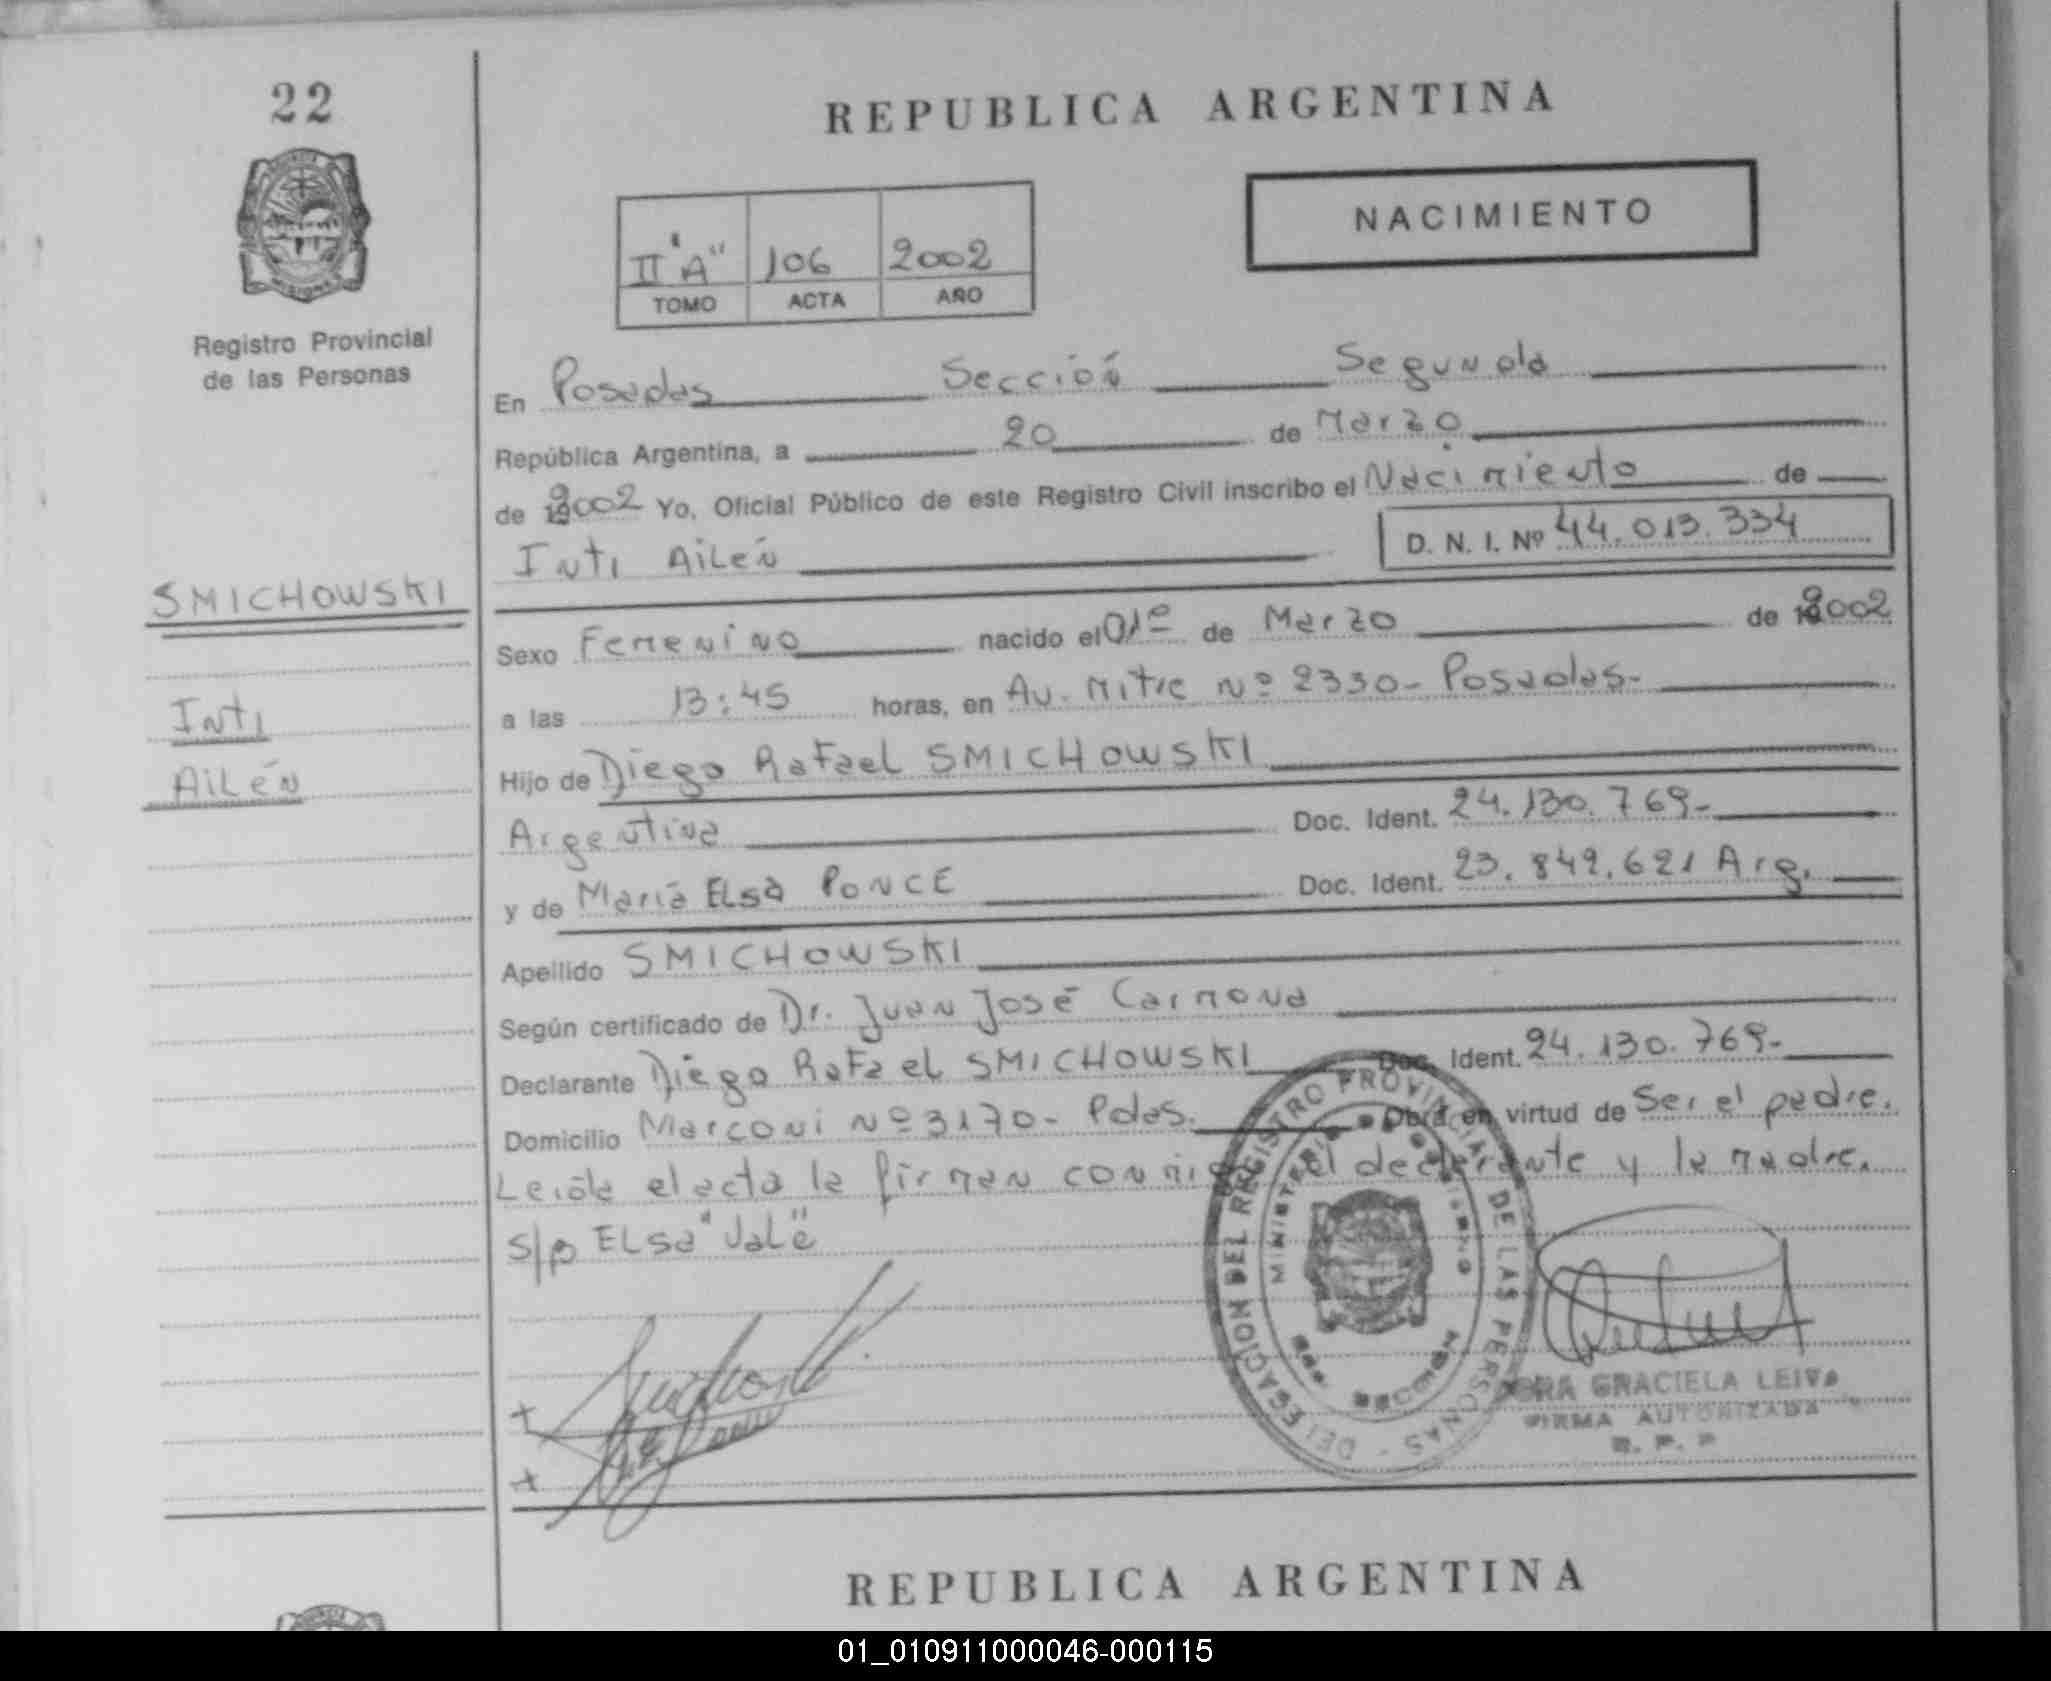 22
REPUBLICA ARGENTINA
NACIMIENTO
II "A" 106 2002
TOMO ACTA AÑO
Registro Provincial
de las Personas
En Posadas Sección Segunda
República Argentina, a 20 de Marzo
de 2002 Yo, Oficial Público de este Registro Civil inscribo el Nacimiento de
Inti Ailén D. N. I. Nº 44.013.334
SMICHOWSKI
Inti
Ailén
Sexo Femenino nacido el 01º de Marzo de 2002
a las 13:45 horas, en Av. Mitre Nº 2330- Posadas-
Hijo de Diego Rafael SMICHOWSKI
Argentina Doc. Ident. 24.130.769-
y de María Elsa PONCE Doc. Ident. 23.842.621 Arg.
Apellido SMICHOWSKI
Según certificado de Dr. Juan José Carmona
Declarante Diego Rafael SMICHOWSKI Doc. Ident. 24.130.769-
Domicilio Marconi Nº 3170- Pdas. Obra en virtud de Ser el padre.
Leída el acta la firman conmigo el declarante y la madre.
S/p Elsa "Vale"
DELEGACION DEL REGISTRO PROVINCIAL DE LAS PERSONAS
MINISTERIO DE GOBIERNO
GRACIELA LEIVA
FIRMA AUTORIZADA
R. P. P
REPUBLICA ARGENTINA
01_010911000046-000115